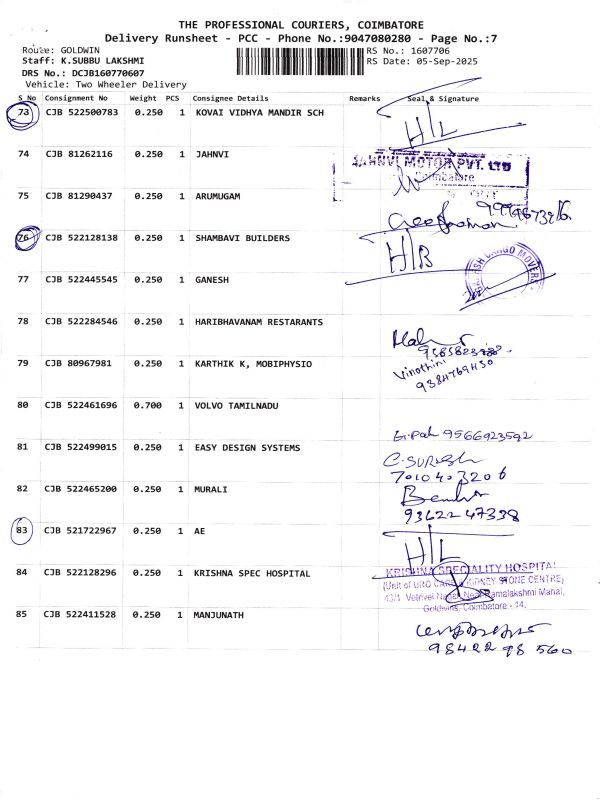 THE PROFESSIONAL COURIERS, COIMBATORE
Delivery Runsheet - PCC - Phone No.:9047080280 - Page No.:7
Route: GOLDWIN RS No.: 1607706
Staff: K.SUBBU LAKSHMI RS Date: 05-Sep-2025
DRS No.: DCJB160770607
Vehicle: Two Wheeler Delivery
S No Consignment No Weight PCS Consignee Details Remarks Seal & Signature
73 CJB 522500783 0.250 1 KOVAI VIDHYA MANDIR SCH H/L
74 CJB 81262116 0.250 1 JAHNVI JAHNVI MOTOR PVT. LTD
Coimbatore
75 CJB 81290437 0.250 1 ARUMUGAM
76 CJB 522128138 0.250 1 SHAMBAVI BUILDERS H/B
77 CJB 522445545 0.250 1 GANESH CARGO MOVERS
78 CJB 522284546 0.250 1 HARIBHAVANAM RESTARANTS
79 CJB 80967981 0.250 1 KARTHIK K, MOBIPHYSIO Vinothini
9384769450
80 CJB 522461696 0.700 1 VOLVO TAMILNADU 9566923592
81 CJB 522499015 0.250 1 EASY DESIGN SYSTEMS C.SURESH
7010403206
82 CJB 522465200 0.250 1 MURALI
9362247338
83 CJB 521722967 0.250 1 AE H/L
84 CJB 522128296 0.250 1 KRISHNA SPEC HOSPITAL KRISHNA SPECIALITY HOSPITAL
(Unit of URO CARE & KIDNEY STONE CENTRE)
43/1 Vetrivel Nagar, Near Ramalakshmi Mahal,
Goldwins, Coimbatore - 14.
85 CJB 522411528 0.250 1 MANJUNATH
98422 98 560